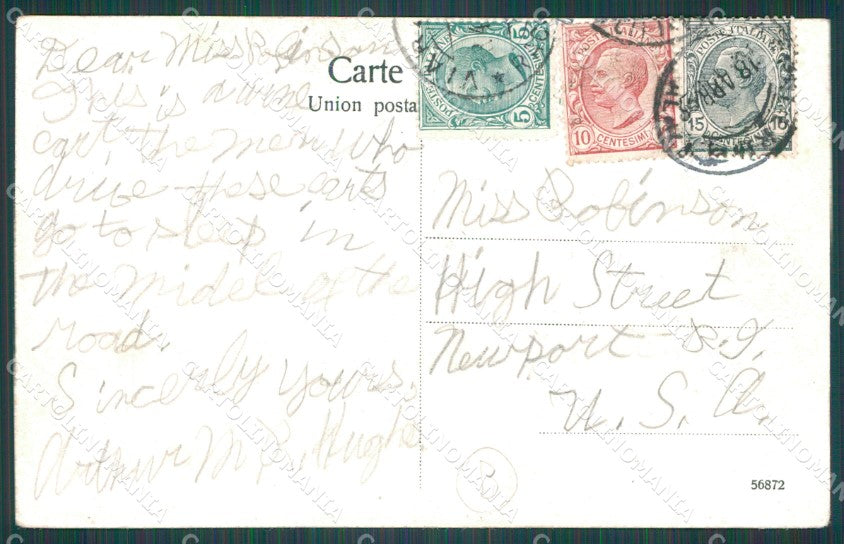 Dear Miss Robinson
This is a wine
cart the men who
drive these carts
go to sleep in
the Midel of the
road.
Sincerly yours,
Arthur M
Carte
Union posta
POSTE ITALIANE
5 CENTESIMI 5
10 CENTESIMI
15 CENTESIMI 15
Miss Robinson
High Street
Newport R.I.
U. S. A.
56872
CARTOLINOMANIA